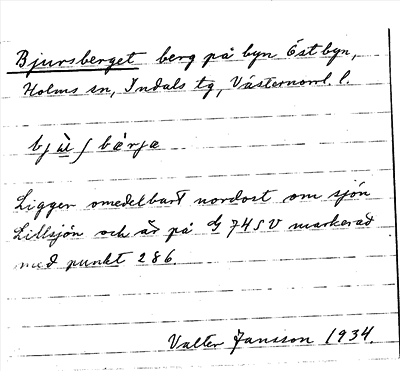 Bjursberget berg på byn Östbyn,
Holms sn, Indals tg, Västernorrl. l.
Ligger omedelbart nordost om sjön
Lillsjön och är på 74 SV markerad
med punkt 286.
Valter Jansson 1934.